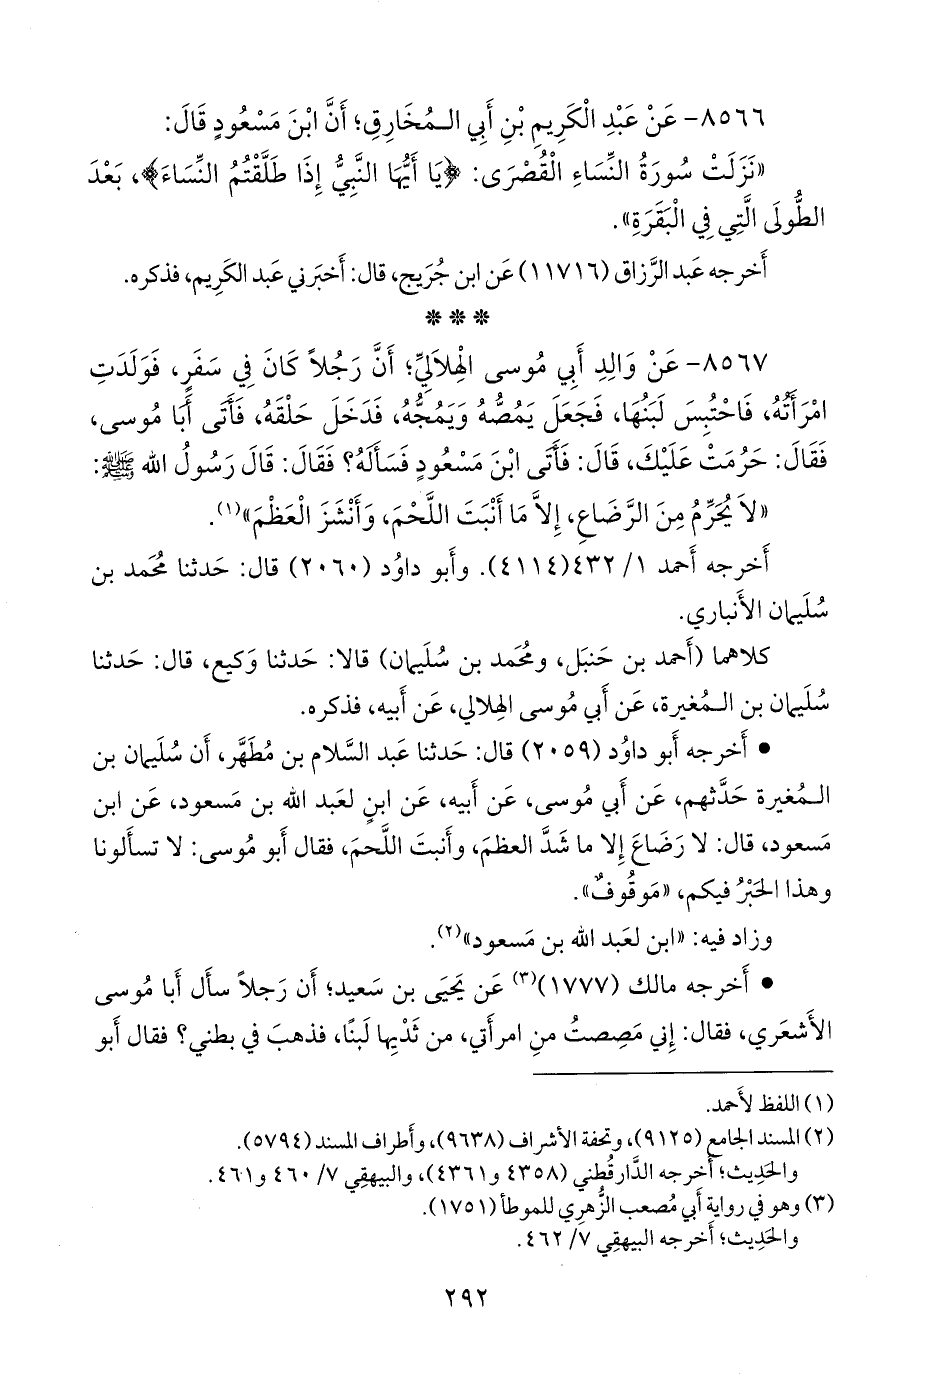 ٨٥٦٦- عَنْ عَبْدِ الْكَرِيمِ بْنِ أَبِي الـمُخَارِقِ؛ أَنَّ ابْنَ مَسْعُودٍ قَالَ:
«نَزَلَتْ سُورَةُ النِّسَاءِ الْقُصْرَى: ﴿يَا أَيُّهَا النَّبِيُّ إِذَا طَلَّقْتُمُ النِّسَاءَ﴾، بَعْدَ
الطُّولَى الَّتِي فِي الْبَقَرَةِ».
أخرجه عَبد الرَّزاق (١١٧١٦) عَن ابن جُرَيج، قال: أَخبَرني عَبد الكَريم، فذكره.
***
٨٥٦٧- عَنْ وَالِدِ أَبِي مُوسى الْهِلاَلِيِّ؛ أَنَّ رَجُلاً كَانَ فِي سَفَرٍ، فَوَلَدَتِ
امْرَأَتُهُ، فَاحْتُبِسَ لَبَنُهَا، فَجَعَلَ يَمُصُّهُ وَيَمُجُّهُ، فَدَخَلَ حَلْقَهُ، فَأَتَى أَبَا مُوسى،
فَقَالَ: حَرُمَتْ عَلَيْكَ، قَالَ: فَأَتَى ابْنَ مَسْعُودٍ فَسَأَلَهُ؟ فَقَالَ: قَالَ رَسُولُ الله ﷺ:
«لاَ يُحَرِّمُ مِنَ الرَّضَاعِ، إِلاَّ مَا أَنْبَتَ اللَّحْمَ، وَأَنْشَزَ الْعَظْمَ»(١).
أخرجه أحمد ١/ ٤٣٢(٤١١٤). وأَبو داوُد (٢٠٦٠) قال: حَدثنا مُحمد بن
سُلَيمان الأَنباري.
كلاهما (أَحمد بن حَنبَل، ومُحمد بن سُلَيمان) قالا: حَدثنا وَكيع، قال: حَدثنا
سُلَيمان بن الـمُغيرة، عَن أَبي مُوسى الهِلالي، عَن أَبيه، فذكره.
• أَخرجه أَبو داوُد (٢٠٥٩) قال: حَدثنا عَبد السَّلام بن مُطَهَّر، أَن سُلَيمان بن
الـمُغيرة حَدَّثهم، عَن أَبي مُوسى، عَن أَبيه، عَن ابنٍ لعَبد الله بن مَسعود، عَن ابن
مَسعود، قال: لا رَضَاعَ إِلا ما شَدَّ العظمَ، وأَنبتَ اللَّحمَ، فقال أَبو مُوسى: لا تسأَلونا
وهذا الحَبْرُ فيكم، «مَوقُوفٌ».
وزاد فيه: «ابن لعَبد الله بن مَسعود»(٢).
• أَخرجه مالك (١٧٧٧)(٣) عَن يَحيَى بن سَعيد؛ أَن رَجلاً سأَل أَبا مُوسى
الأَشعَري، فقال: إِني مَصِصتُ مِنِ امرأَتي، من ثَدْيِها لَبنًا، فذهبَ في بطني؟ فقال أَبو
(١) اللفظ لأَحمد.
(٢) المسند الجامع (٩١٢٥)، وتحفة الأشراف (٩٦٣٨)، وأَطراف المسند (٥٧٩٤).
والحَدِيث؛ أَخرجه الدَّارقُطني (٤٣٥٨ و٤٣٦١)، والبيهقِي ٧/ ٤٦٠ و٤٦١.
(٣) وهو في رواية أَبي مُصعب الزُّهري للموطأ (١٧٥١).
والحَدِيث؛ أَخرجه البيهقِي ٧/ ٤٦٢.
٢٩٢